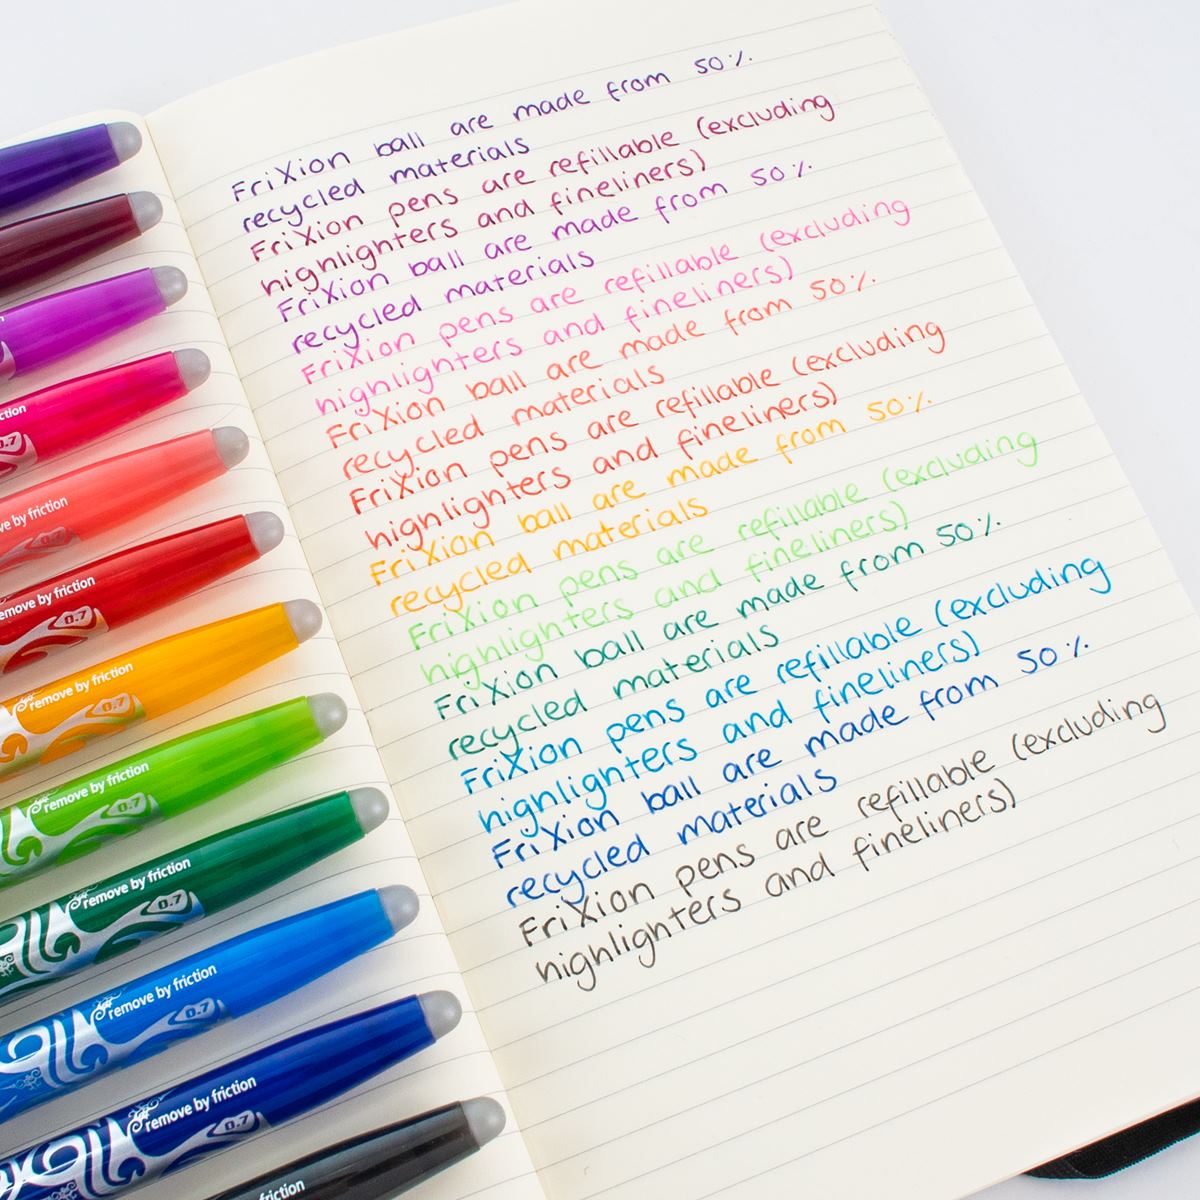 FriXion ball are made from 50%
recycled materials
FriXion pens are refillable (excluding
highlighters and fineliners)
FriXion ball are made from 50%
recycled materials
FriXion pens are refillable (excluding
highlighters and fineliners)
FriXion ball are made from 50%
recycled materials
FriXion pens are refillable (excluding
highlighters and fineliners)
FriXion ball are made from 50%
recycled materials
FriXion pens are refillable (excluding
highlighters and fineliners)
FriXion ball are made from 50%
recycled materials
FriXion pens are refillable (excluding
highlighters and fineliners)
FriXion ball are made from 50%
recycled materials
FriXion pens are refillable (excluding
highlighters and fineliners)
ction
0.7
ve by friction
emove by friction
0.7
remove by friction
0.7
remove by friction
0.7
remove by friction
0.7
remove by friction
0.7
remove by friction
0.7
friction